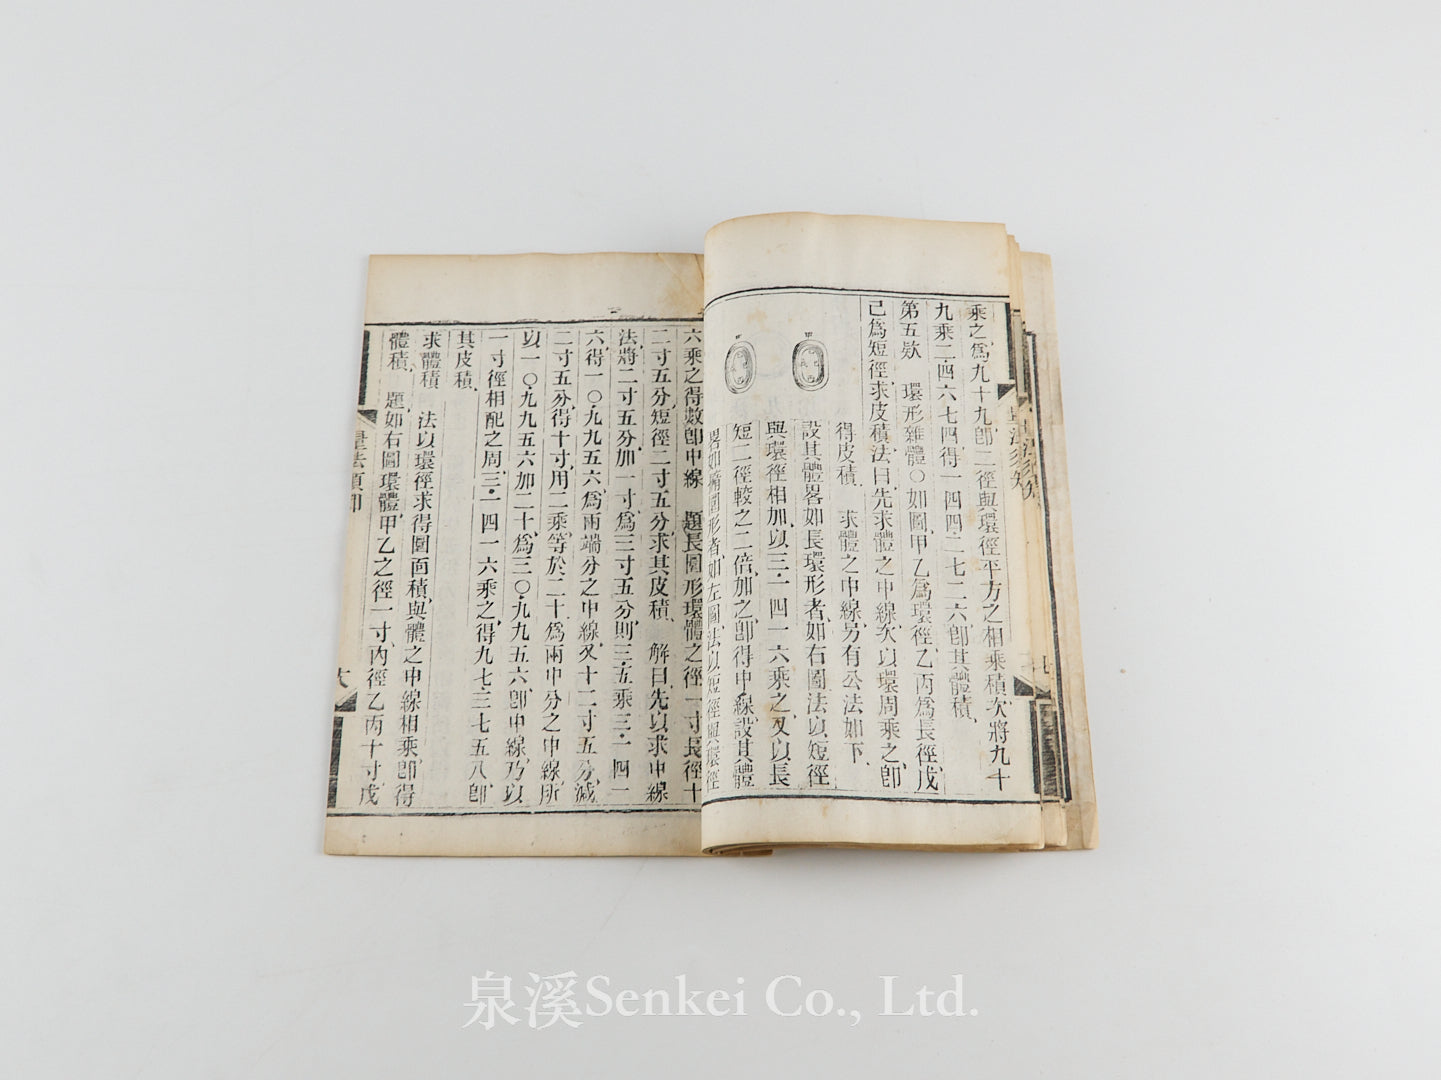 乘之、爲九十九、卽二徑與環徑平方之相乘積、次將九十
九乘二·四六七四得一四四·二七二六、卽其體積、
第五欵　環形雜體〇如圖、甲乙爲環徑、乙丙爲長徑、戊
己爲短徑、求皮積、法曰、先求體之中線、次以環周乘之、卽
得皮積、　求體之中線、另有公法如下、
甲
設其體畧如長環形者、如右圖、法以短徑
與環徑相加、以三·一四一六乘之、又以長
短二徑較之二倍加之、卽得中線、設其體
甲
畧如橢圓形者、如左圖、法以短徑與環徑
六乘之、得數卽中線　題長圓形環體之徑一寸、長徑十
二寸五分、短徑二寸五分、求其皮積、　解曰、先以求中線
法、將二寸五分加一寸、爲三寸五分、則三·五乘三·一四一
六、得一〇·九九五六、爲兩端分之中線、又十二寸五分、減
二寸五分、得十寸、用二乘、等於二十、爲兩中分之中線、所
以一〇·九九五六加二十、爲三〇·九九五六、卽中線、乃以
一寸徑相配之周、三·一四一六乘之、得九七·三七五八、卽
其皮積、
求體積　法以環徑求得圓面積、與體之中線相乘、卽得
體積、　題如右圖、環體甲乙之徑一寸、內徑乙丙十寸、戊
量法須知
泉溪Senkei Co., Ltd.